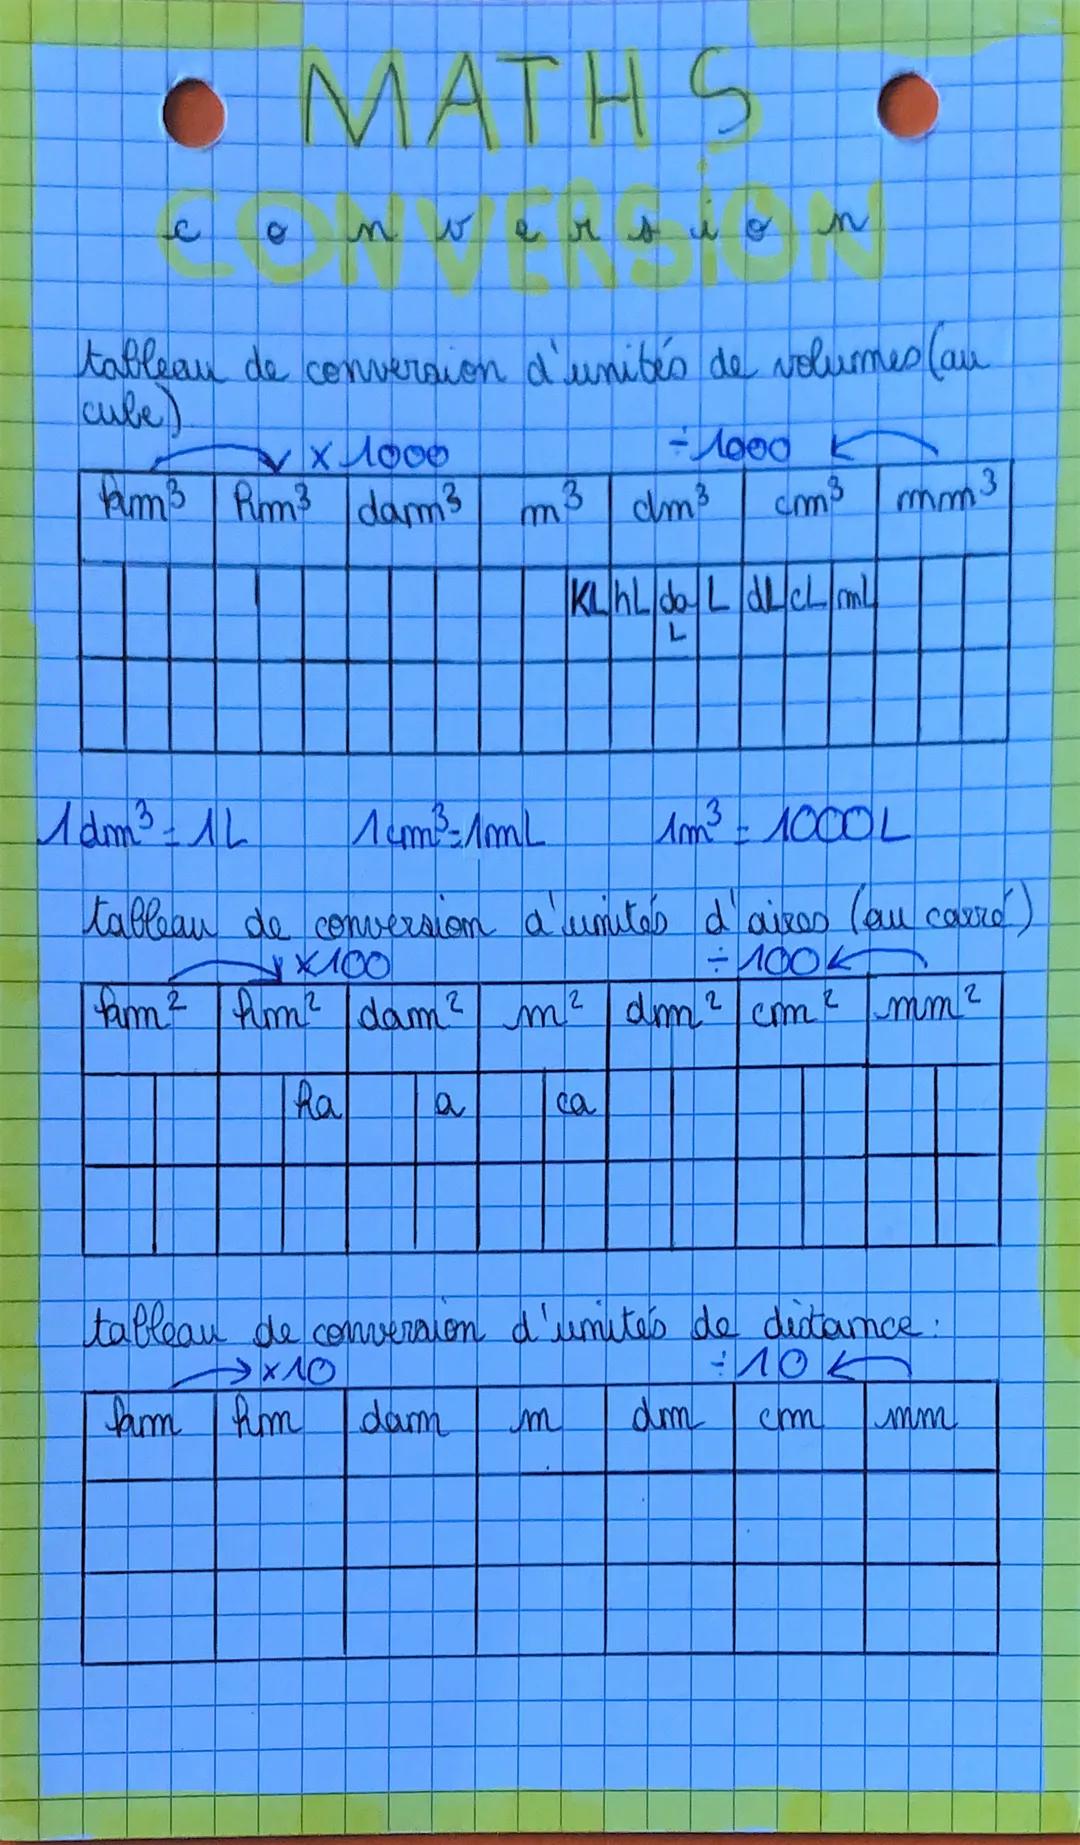 MATHS
CONVERSION
conversion
tableau de conversion d'unités de volumes (au
cube)
× 1000 ÷ 1000
km³ hm³ dam³ m³ dm³ cm³ mm³
KL hL da L dL cL mL
L
1 dm³ = 1L 1 cm³ = 1mL 1m³ = 1000L
tableau de conversion d'unités d'aires (au carré)
×100 ÷ 100
km² hm² dam² m² dm² cm² mm²
ha a ca
tableau de conversion d'unités de distance :
×10 ÷ 10
km hm dam m dm cm mm